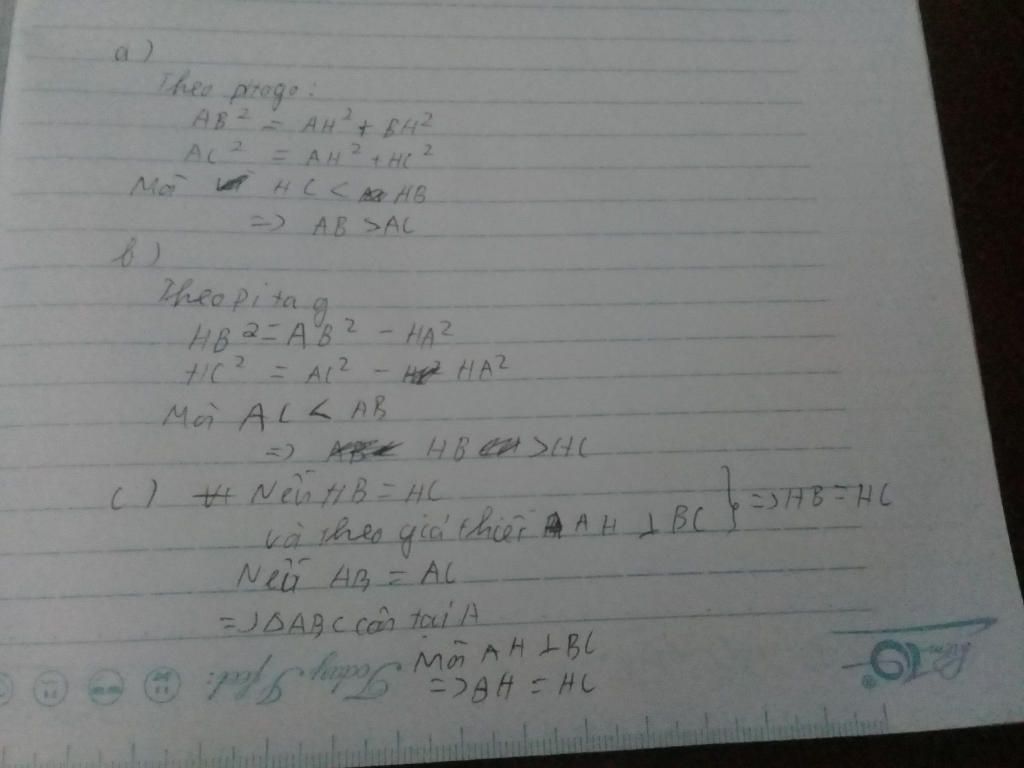 a)
Theo pitago:
AB² = AH² + BH²
AC² = AH² + HC²
Mà HC < HB
=> AB > AC
b)
Theo pitag
HB² = AB² - HA²
HC² = AC² - HA²
Mà AC < AB
=> HB > HC
c) Nếu HB = HC
và theo giả thiết AH ⊥ BC } => HB = HC
Nếu AB = AC
=> ΔABC cân tại A
Mà AH ⊥ BC
=> BH = HC
Today I feel: